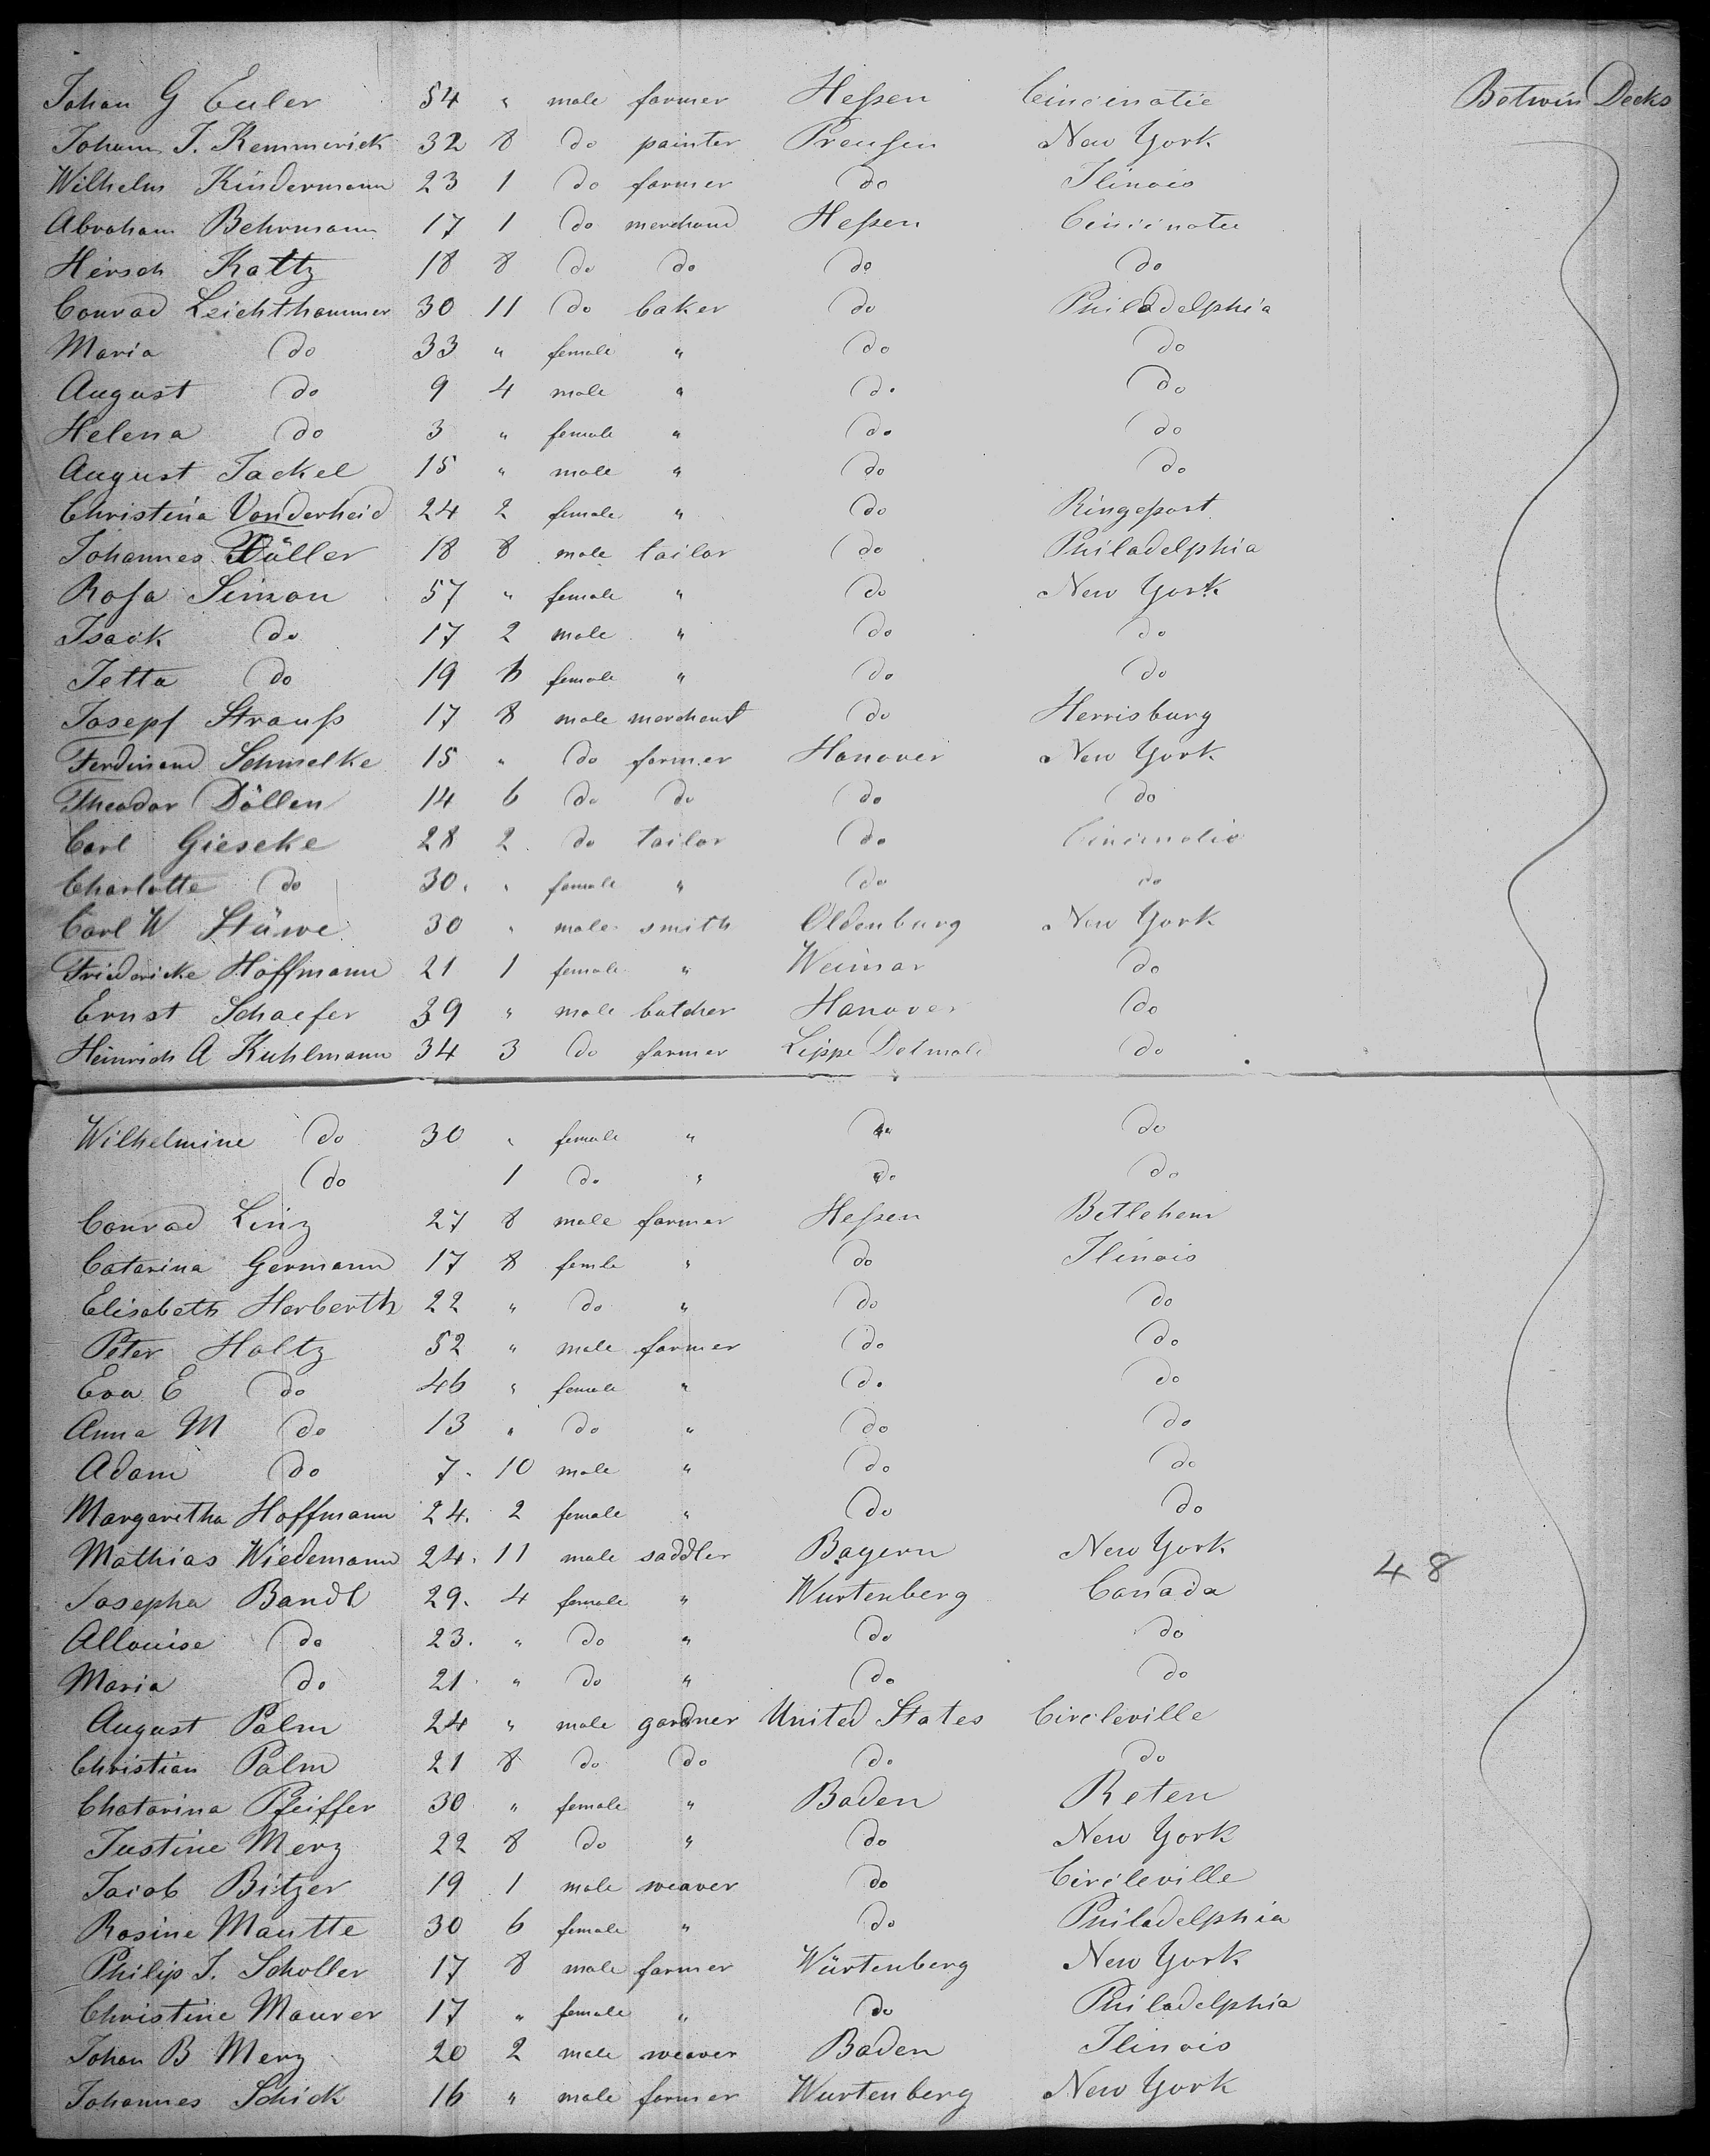 Johan G Euler 54 " male farmer Heßen Cincinatie Betwin Decks
Johann J. Remmerick 32 8 do painter Preußen New York
Wilhelm Kindermann 23 1 do farmer do Ilinois
Abraham Behrmann 17 1 do merchand Heßen Cincinatie
Hersch Kattz 18 8 do do do do
Conrad Leichthammer 30 11 do baker do Philadelphia
Maria do 33 " female " do do
August do 9 4 male " do do
Helena do 3 " female " do do
August Jackel 15 " male " do do
Christina Vonderheid 24 2 female " do Ringeport
Johannes Düller 18 8 male tailor do Philadelphia
Rosa Simon 57 " female " do New York
Isack do 17 2 male " do do
Jetta do 19 6 female " do do
Josepf Strauß 17 8 male merchant do Herrisburg
Ferdinand Schmelke 15 " do farmer Hanover New York
Theodor Döllen 14 6 do do do do
Carl Gieseke 28 2 do tailor do Cincinatie
Charlotte do 30. " female " do do
Carl W Stüwe 30 " male smith Oldenburg New York
Friedericke Hoffmann 21 1 female " Weimar do
Ernst Schaefer 39 " male butcher Hanover do
Heinrich A Kuhlmann 34 3 do farmer Lippe Detmold do
Wilhelmine do 30 " female " do do
do 1 do " do do
Conrad Linz 27 8 male farmer Heßen Betlehem
Catarina Germann 17 8 femle " do Ilinois
Elisabeth Herberth 22 " do " do do
Peter Holtz 52 " male farmer do do
Eva E do 46 " female " do do
Anna M do 13 " do " do do
Adam do 7. 10 male " do do
Margaretha Hoffmann 24. 2 female " do do
Mathias Wiedemann 24. 11 male saddler Bayern New York 48
Josepha Bandl 29. 4 female " Wurtenberg Canada
Allouise do 23. " do " do do
Maria do 21 " do " do do
August Palm 24 " male gardner United States Circleville
Christian Palm 21 8 do do do do
Chatarina Pfeiffer 30 " female " Baden Reten
Justine Merz 22 8 do " do New York
Jacob Bitzer 19 1 male weaver do Circleville
Rosine Mautte 30 6 female " do Philadelphia
Philip J. Scholler 17 8 male farmer Würtenberg New York
Christine Maurer 17 " female " do Philadelphia
Johan B Merz 20 2 male weaver Baden Ilinois
Johannes Schick 16 " male farmer Wurtenberg New York